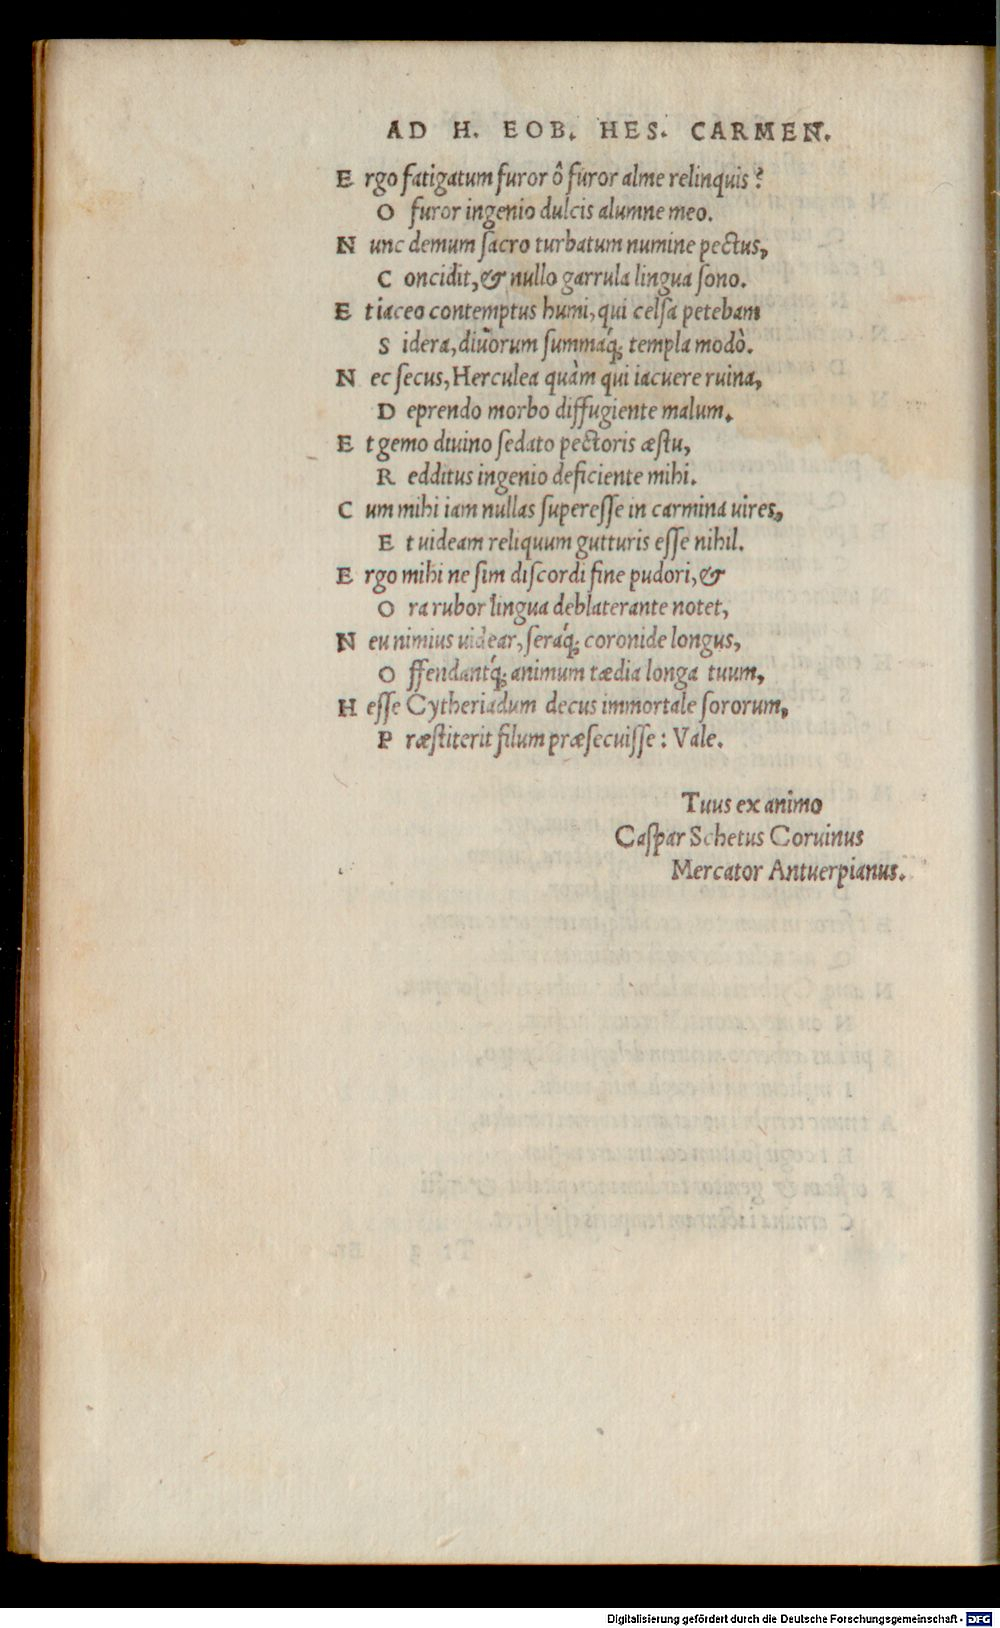 AD H. EOB. HES. CARMEN.
Ergo fatigatum furor ô furor alme relinquis?
O furor ingenio dulcis alumne meo.
Nunc demum sacro turbatum numine pectus,
Concidit, & nullo garrula lingua sono.
Et iaceo contemptus humi, qui celsa petebam
Sidera, diuorum summaq́; templa modò.
Nec secus, Herculea quàm qui iacuere ruina,
Deprendo morbo diffugiente malum.
Et gemo diuino sedato pectoris æstu,
Redditus ingenio deficiente mihi.
Cum mihi iam nullas superesse in carmina uires,
Et uideam reliquum gutturis esse nihil.
Ergo mihi ne sim discordi fine pudori, &
Ora rubor lingua deblaterante notet,
Neu nimius uidear, seraq́; coronide longus,
Offendantq́; animum tædia longa tuum,
Hesse Cytheriadum decus immortale sororum,
Præstiterit filum præsecuisse: Vale.
Tuus ex animo
Caspar Schetus Coruinus
Mercator Antuerpianus.
Digitalisierung gefördert durch die Deutsche Forschungsgemeinschaft - DFG